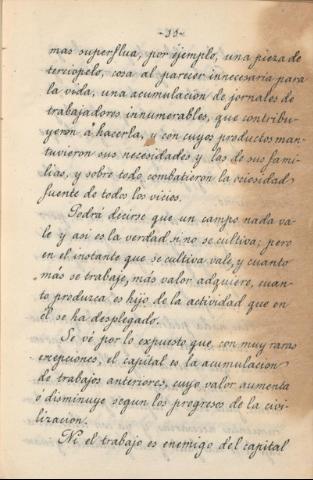 -33-
mas superflua, por ejemplo, una pieza de
terciopelo, cosa al parecer innecesaria para
la vida, una acumulacion de jornales de
trabajadores innumerables, que contribu-
yeron á hacerla, y con cuyos productos man-
tuvieron sus necesidades y las de sus fami-
lias, y sobre todo combatieron la ociosidad,
fuente de todos los vicios.
Podrá decirse que un campo nada va-
le y asi es la verdad si no se cultiva; pero
en el instante que se cultiva vale, y cuanto
más se trabaje, más valor adquiere, cuan-
to produzca es hijo de la actividad que en
él se ha desplegado.
Se vé por lo expuesto que, con muy raras
excepciones, el capital es la acumulacion
de trabajos anteriores, cuyo valor aumenta
o disminuye segun los progresos de la civi-
lizacion.
Ni el trabajo es enemigo del capital